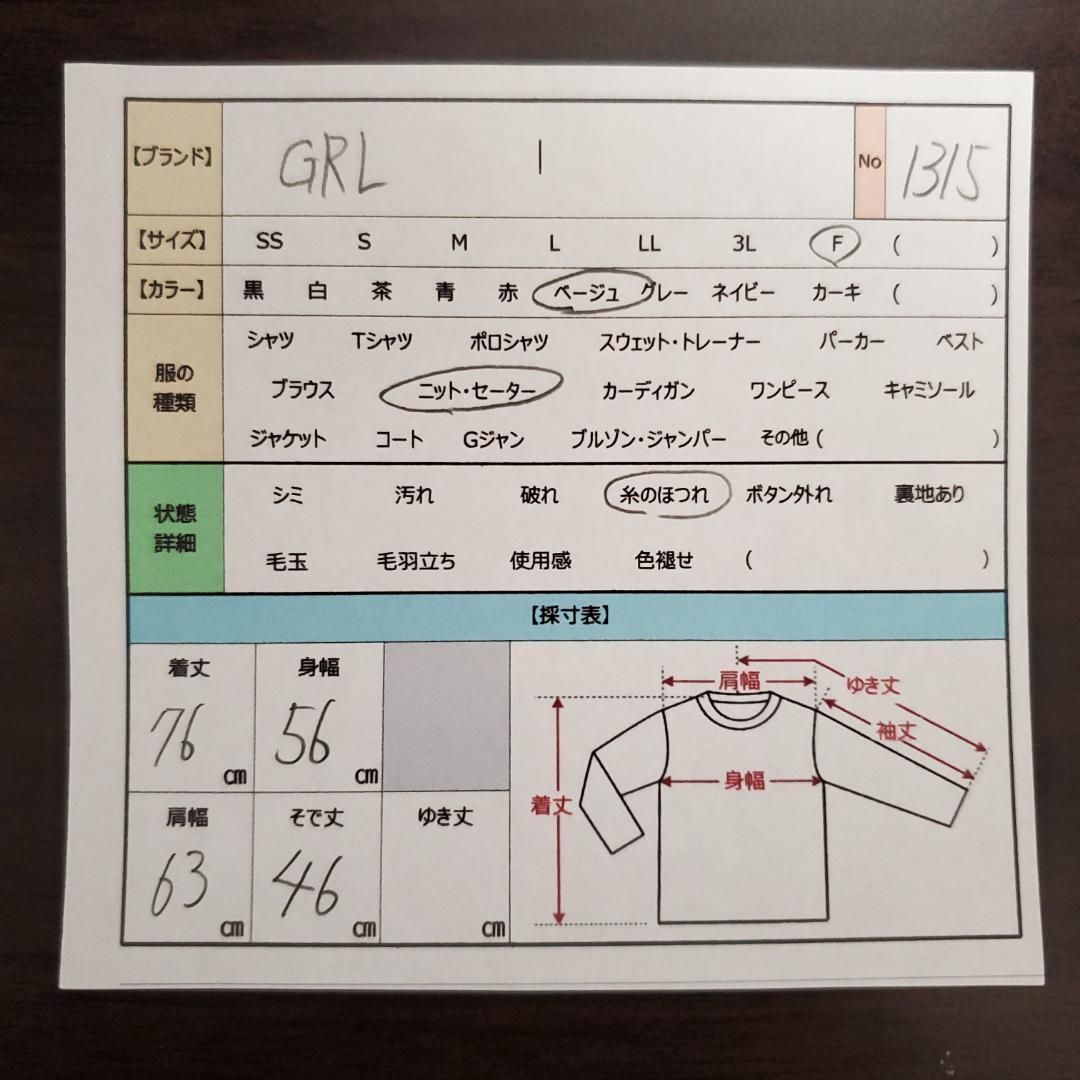 【ブランド】 GRL | No 1315
【サイズ】 SS S M L LL 3L F ( )
【カラー】 黒 白 茶 青 赤 ベージュ グレー ネイビー カーキ ( )
服の
種類
シャツ Tシャツ ポロシャツ スウェット・トレーナー パーカー ベスト
ブラウス ニット・セーター カーディガン ワンピース キャミソール
ジャケット コート Gジャン ブルゾン・ジャンパー その他 ( )
状態
詳細
シミ 汚れ 破れ 糸のほつれ ボタン外れ 裏地あり
毛玉 毛羽立ち 使用感 色褪せ ( )
【採寸表】
着丈 身幅
76 cm 56 cm
肩幅 そで丈 ゆき丈
63 cm 46 cm cm
肩幅 ゆき丈
袖丈
身幅
着丈